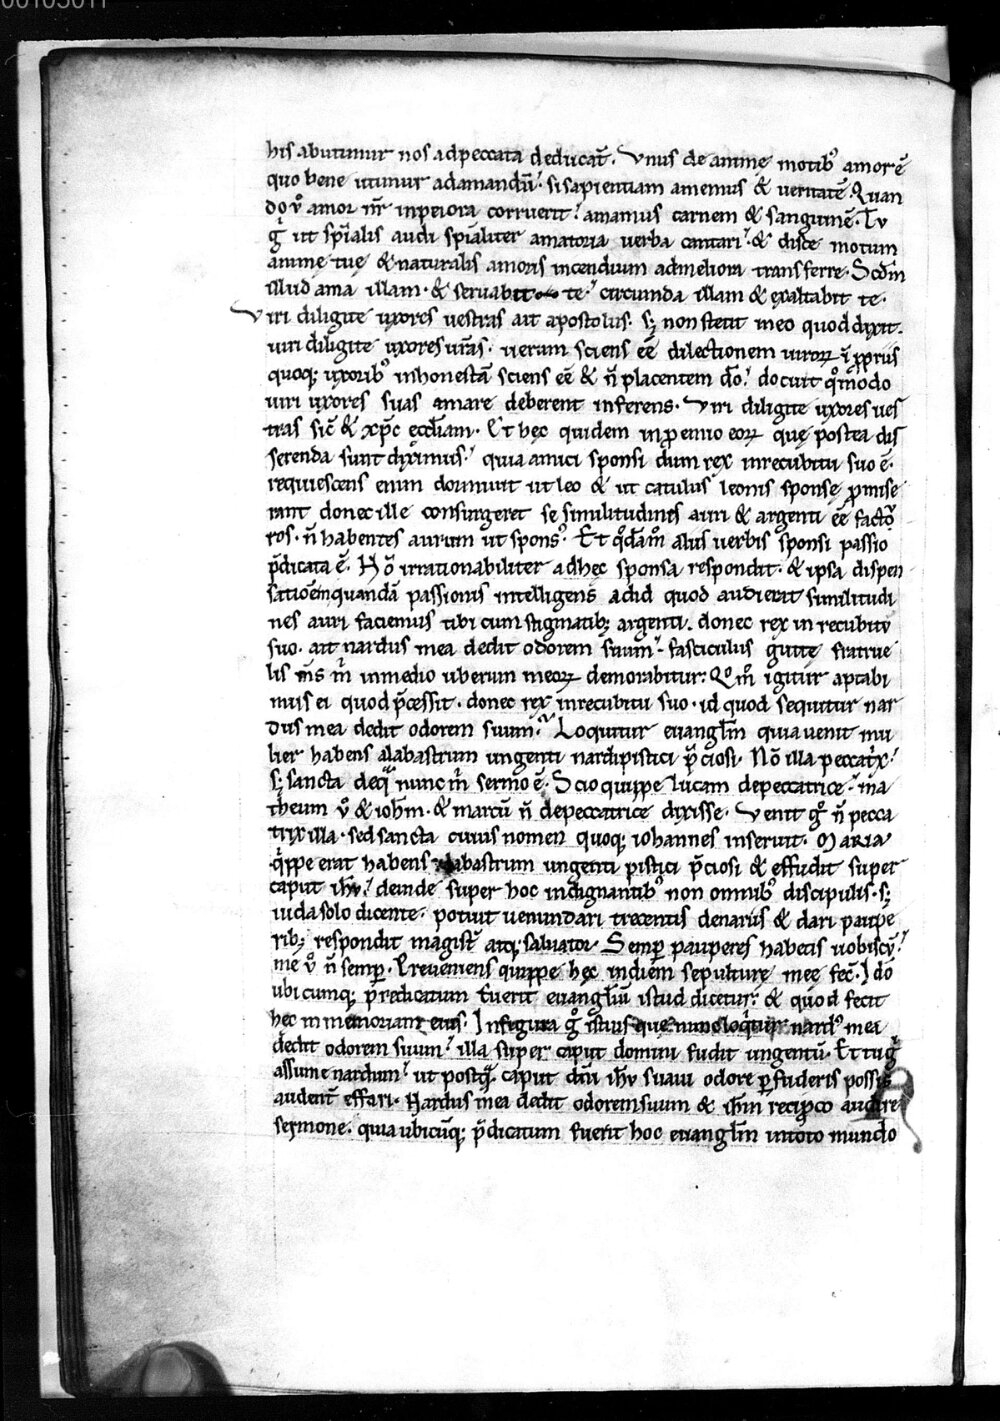 00103011
his abutimur nos ad peccata deducat̄. Vnus de anime motib᷒ amorē
quo bene utimur ad amandū. si sapientiam amemus & ueritatē. Quan
do ů amor nr̄ in peiora corruerit. amamus carnem & sanguinē. Tu
g̊ ut spīalis audi spīaliter amatoria uerba cantari. & disce motum
animę tuę & naturalis amoris incendium ad meliora transferre. Scdm̄
illud ama illam. & seruabit te. circunda illam & exaltabit te.
Viri diligite uxores uestras ait apostolus. sꝫ non stetit in eo quod dixit.
uiri diligite uxores urās. uerum sciens eē dilectionem uiroꝝ ī ꝓpriis
quoqꝫ uxorib᷒ inhonestā sciens eē & n̄ placentem dō. docuit qm̊odo
uiri uxores suas amare deberent inferens. Viri diligite uxores ues
tras sic̄ & xp̄c ecclīam. Et hęc quidem in ꝓemio eoꝝ quę postea dis
serenda sunt diximus. quia amici sponsi dum rex in recubitu suo ē.
requiescens enim dormiuit ut leo & ut catulus leonis sponsę ꝓmise
rant donec ille consurgeret se similitudines auri & argenti eē facto
ros. n̄ habentes aurum ut spons᷒. Et qd̊am̊ aliis uerbis sponsi passio
p̄dicata ē. Hō irrationabiliter ad hęc sponsa respondit. & ipsa dispen
sationē quandā passionis intelligens ad id quod audierat similitudi
nes auri faciemus tibi cum stigmatibꝫ argenti. donec rex in recubitu
suo. ait nardus mea dedit odorem suum. fasciculus guttę fratrue
lis m̄s m̊ in medio uberum meoꝝ demorabitur. Qm̊ igitur aptabi
mus ei quod p̄cessit. donec rex in recubitu suo. id quod sequitur nar
dus mea dedit odorem suum. Loquitur euangl̄m quia uenit mu
lier habens alabastrum ungenti nardi pistici p̄ciosi. Nō illa peccatͥx.
sꝫ sancta de qͣ nunc m̊ sermo ē. Scio quippe lucam de peccatrice. ma
theum ů & ioh̄m. & marcū n̄ de peccatrice dixisse. Venit g̊ n̄ pecca
trix illa. sed sancta cuius nomen quoqꝫ iohannes inseruit. MARIA
qͥppe erat habens alabastrum ungenti pistici p̄ciosi & effudit super
caput ih̄u. deinde super hoc indignantib᷒ non omnib᷒ discipulis. sꝫ
iuda solo dicente. potuit uenundari trecentis denariis & dari paupe
ribꝫ respondit magist̄ atqꝫ saluator. Semꝑ pauperes habetis uobiscū.
me ů n̄ semꝑ. Preueniens quippe hęc in diem sepulturę meę fec̄. Ido
ubicumqꝫ predicatum fuerit euangl̄iū istud dicetur. & quod fecit
hęc in memoriam eius. In figura g̊ istius que nunc loqͥtur nard᷒ mea
dedit odorem suum. illa super caput domini fudit ungentū. Et tu g̊
assume nardum. ut postqͣ̄ caput dn̄i ih̄u suaui odore ꝑfuderis possis
audent̄ effari. Nardus mea dedit odorem suum & ih̄m reciproco audire
sermone. quia ubicūqꝫ p̄dicatum fuerit hoc euangl̄m in toto mundo